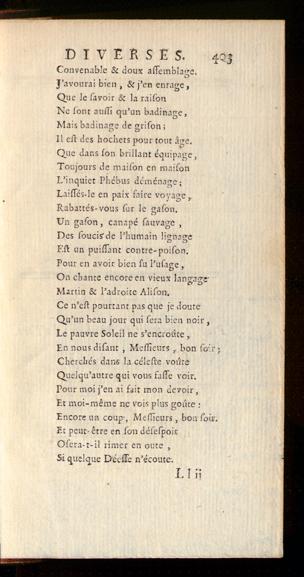 DIVERSES. 403
Convenable & doux aſſemblage.
J'avourai bien, & j'en enrage,
Que le ſavoir & la raiſon
Ne ſont auſſi qu'un badinage,
Mais badinage de griſon;
Il eſt des hochets pour tout âge.
Que dans ſon brillant équipage,
Toujours de maiſon en maiſon
L'inquiet Phébus déménage;
Laiſſés-le en paix faire voyage,
Rabattés-vous ſur le gaſon.
Un gaſon, canapé ſauvage,
Des ſoucis de l'humain lignage
Eſt un puiſſant contre-poiſon.
Pour en avoir bien ſu l'uſage,
On chante encore en vieux langage
Martin & l'adroite Aliſon.
Ce n'eſt pourtant pas que je doute
Qu'un beau jour qui ſera bien noir,
Le pauvre Soleil ne s'encroûte,
En nous diſant, Meſſieurs, bon ſoir;
Cherchés dans la céleſte voûte
Quelqu'autre qui vous faſſe voir.
Pour moi j'en ai fait mon devoir,
Et moi-même ne vois plus goûte:
Encore un coup, Meſſieurs, bon ſoir.
Et peut-être en ſon déſeſpoir
Oſera-t-il rimer en oute,
Si quelque Déeſſe n'écoute.
L l ij